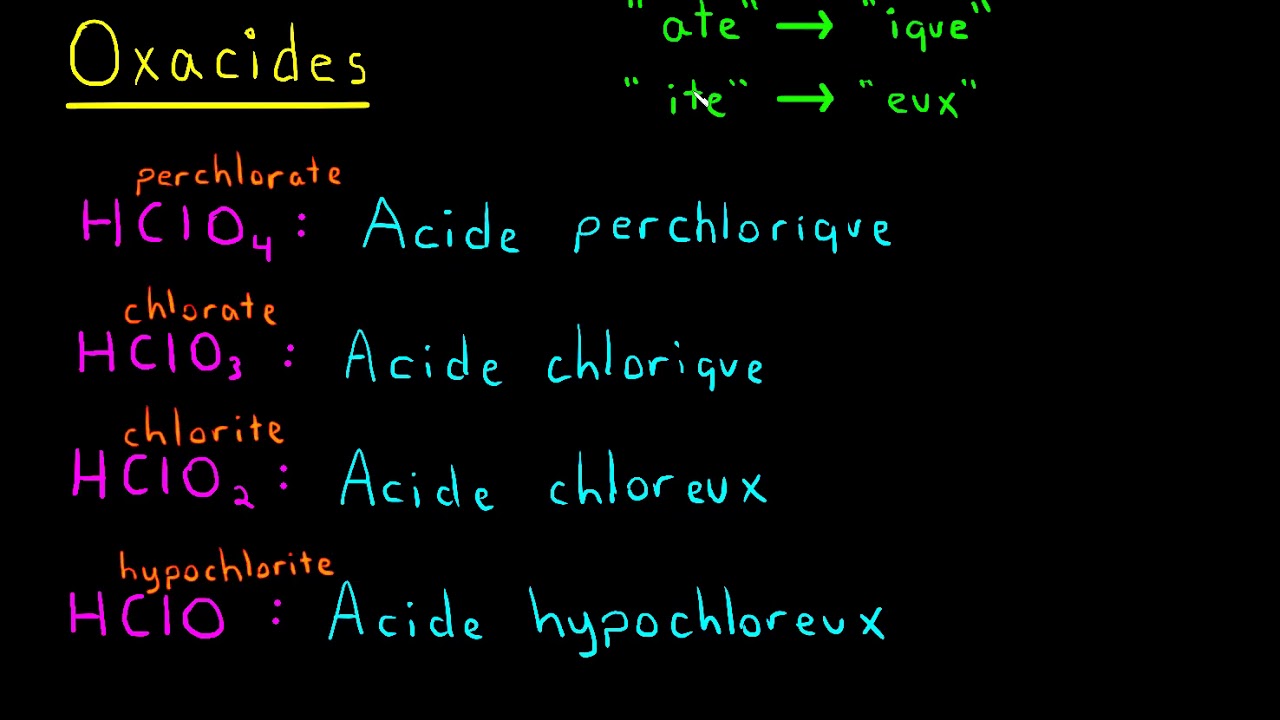 Oxacides
"ate" → "ique"
"ite" → "eux"
perchlorate
HClO₄ : Acide perchlorique
chlorate
HClO₃ : Acide chlorique
chlorite
HClO₂ : Acide chloreux
hypochlorite
HClO : Acide hypochloreux